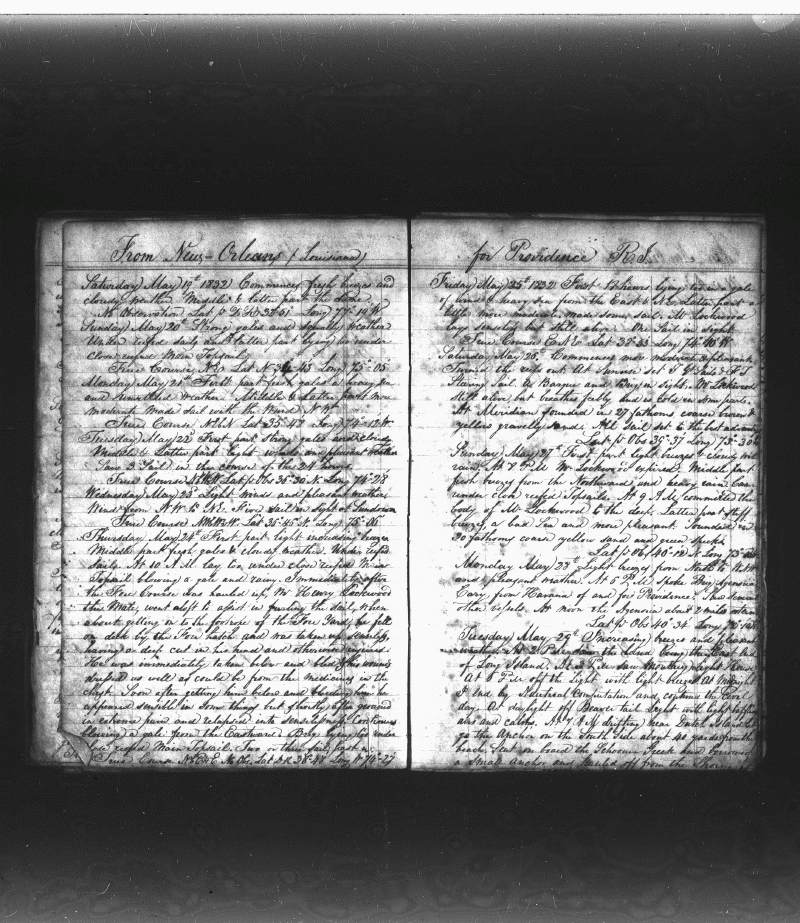 From New-Orleans (Louisiana)
Saturday May 19th 1832) Commences fresh breezes and
cloudy weather. Middle & latter part the same.
No Observation Lat p D.R. 33°51' Long 77°19 W
Sunday May 20th Strong gales and squally weather
Under reefed sails and latter part lying to under
close reefed Main Topsail
True Course N E Lat N 34-45 Long 75°05
Monday May 21st First part fresh gales a heavy sea
and unsettled weather. Middle & Latter part more
moderate made sail with the Wind N.W.
True Course Lat 35°42 Long 74°12 W
Tuesday May 22 First part Strong gales and cloudy
Middle & Latter part light winds and pleasant weather
Saw 3 Sail in the course of the 24 hours
True Course Lat p Obs 36°30 N. Long 74°28
Wednesday May 23d Light winds and pleasant weather
Wind from N.W. to N.E. Five sail in sight at Sundown
True Course Lat 36°45 N. Long 75°00
Thursday May 24th First part light increasing breezes
Middle part fresh gales & cloudy weather. Under reefed
Sails. At 10 A.M. lay too under close reefed Main
Topsail blowing a gale and rainy. Immediately after
the Fore Course was hauled up, Mr Henry Lockwood
the Mate, went aloft to assist in furling the sail, when
about getting on to the footrope of the Fore Yard, he fell
on deck by the Fore hatch and was taken up senseless,
having a deep cut in his head and otherwise injured
He was immediately taken below and bled & his wounds
dressed as well as could be from the medicines in the
chest. Soon after getting him below and bleeding him he
appeared sensible in some things but shortly after groaned
in extreme pain and relapsed into senselessness. Continues
blowing a gale from the Eastward Brig lying too under
close reefed Main Topsail. Two or three sail past us
True Course Lat D.R 38°48 Long W 74°27
for Providence R.I.
Friday May 25th 1832 First 13 hours lying too in a gale
of wind & heavy sea from the East & N.E. Latter part a
little more moderate made some sail. Mr Lockwood
lay senseless but still alive. One Sail in sight
True Course Lat 38°33 Long 74°43 W
Saturday May 26th Commences more moderate & pleasant
Turned the reefs out. At Sunrise set T G Sails & F T
Steering Sail. A Barque and Brig in sight. Mr Lockwood
Still alive, but breathes feebly and is cold in some parts.
At Meridian sounded in 27 fathoms coarse brown &
yellow gravelly sand. All Sail set to the best advantage
Lat p Obs 39°37 Long 73°30
Sunday May 27th First part light breezes & cloudy with
rain. At 8 P.M. Mr Lockwood expired. Middle part
fresh breezes from the Northward and heavy rain Came
under close reefed Topsails. At 9 A.M. committed the
body of Mr Lockwood to the deep. Latter part stiff
breezes, a bad Sea and more pleasant. Sounded in
20 fathoms coarse yellow sand and green specks
Lat p Obs 40°12 N Long 73°
Monday May 28th Light breezes from North to N.W.
and pleasant weather. At 6 P.M. spoke Brig Agenoria
Cary from Havana of and for Providence. Saw several
other vessels. At noon the Agenoria about 2 miles
Lat p Obs 40°34 Long 73°
Tuesday May 29th Increasing breeze and pleasant
weather. At 2 P.M. saw the Land being the East
of Long Island. At 3 P.M. saw Montauk Light House
At 6 P.M. off the Light with light breezes. At Midnight
I end by Nautical Computation and continue the Civil
day. At daylight off Beaver tail Light with light baffling
airs and calms. At 7 A.M. drifting near Dutch Island let
go the Anchor on the South Side about 40 yards from the
beach. Sent on board the Schooner Greek and borrowed
a Small anchor and hauled off from the Shore